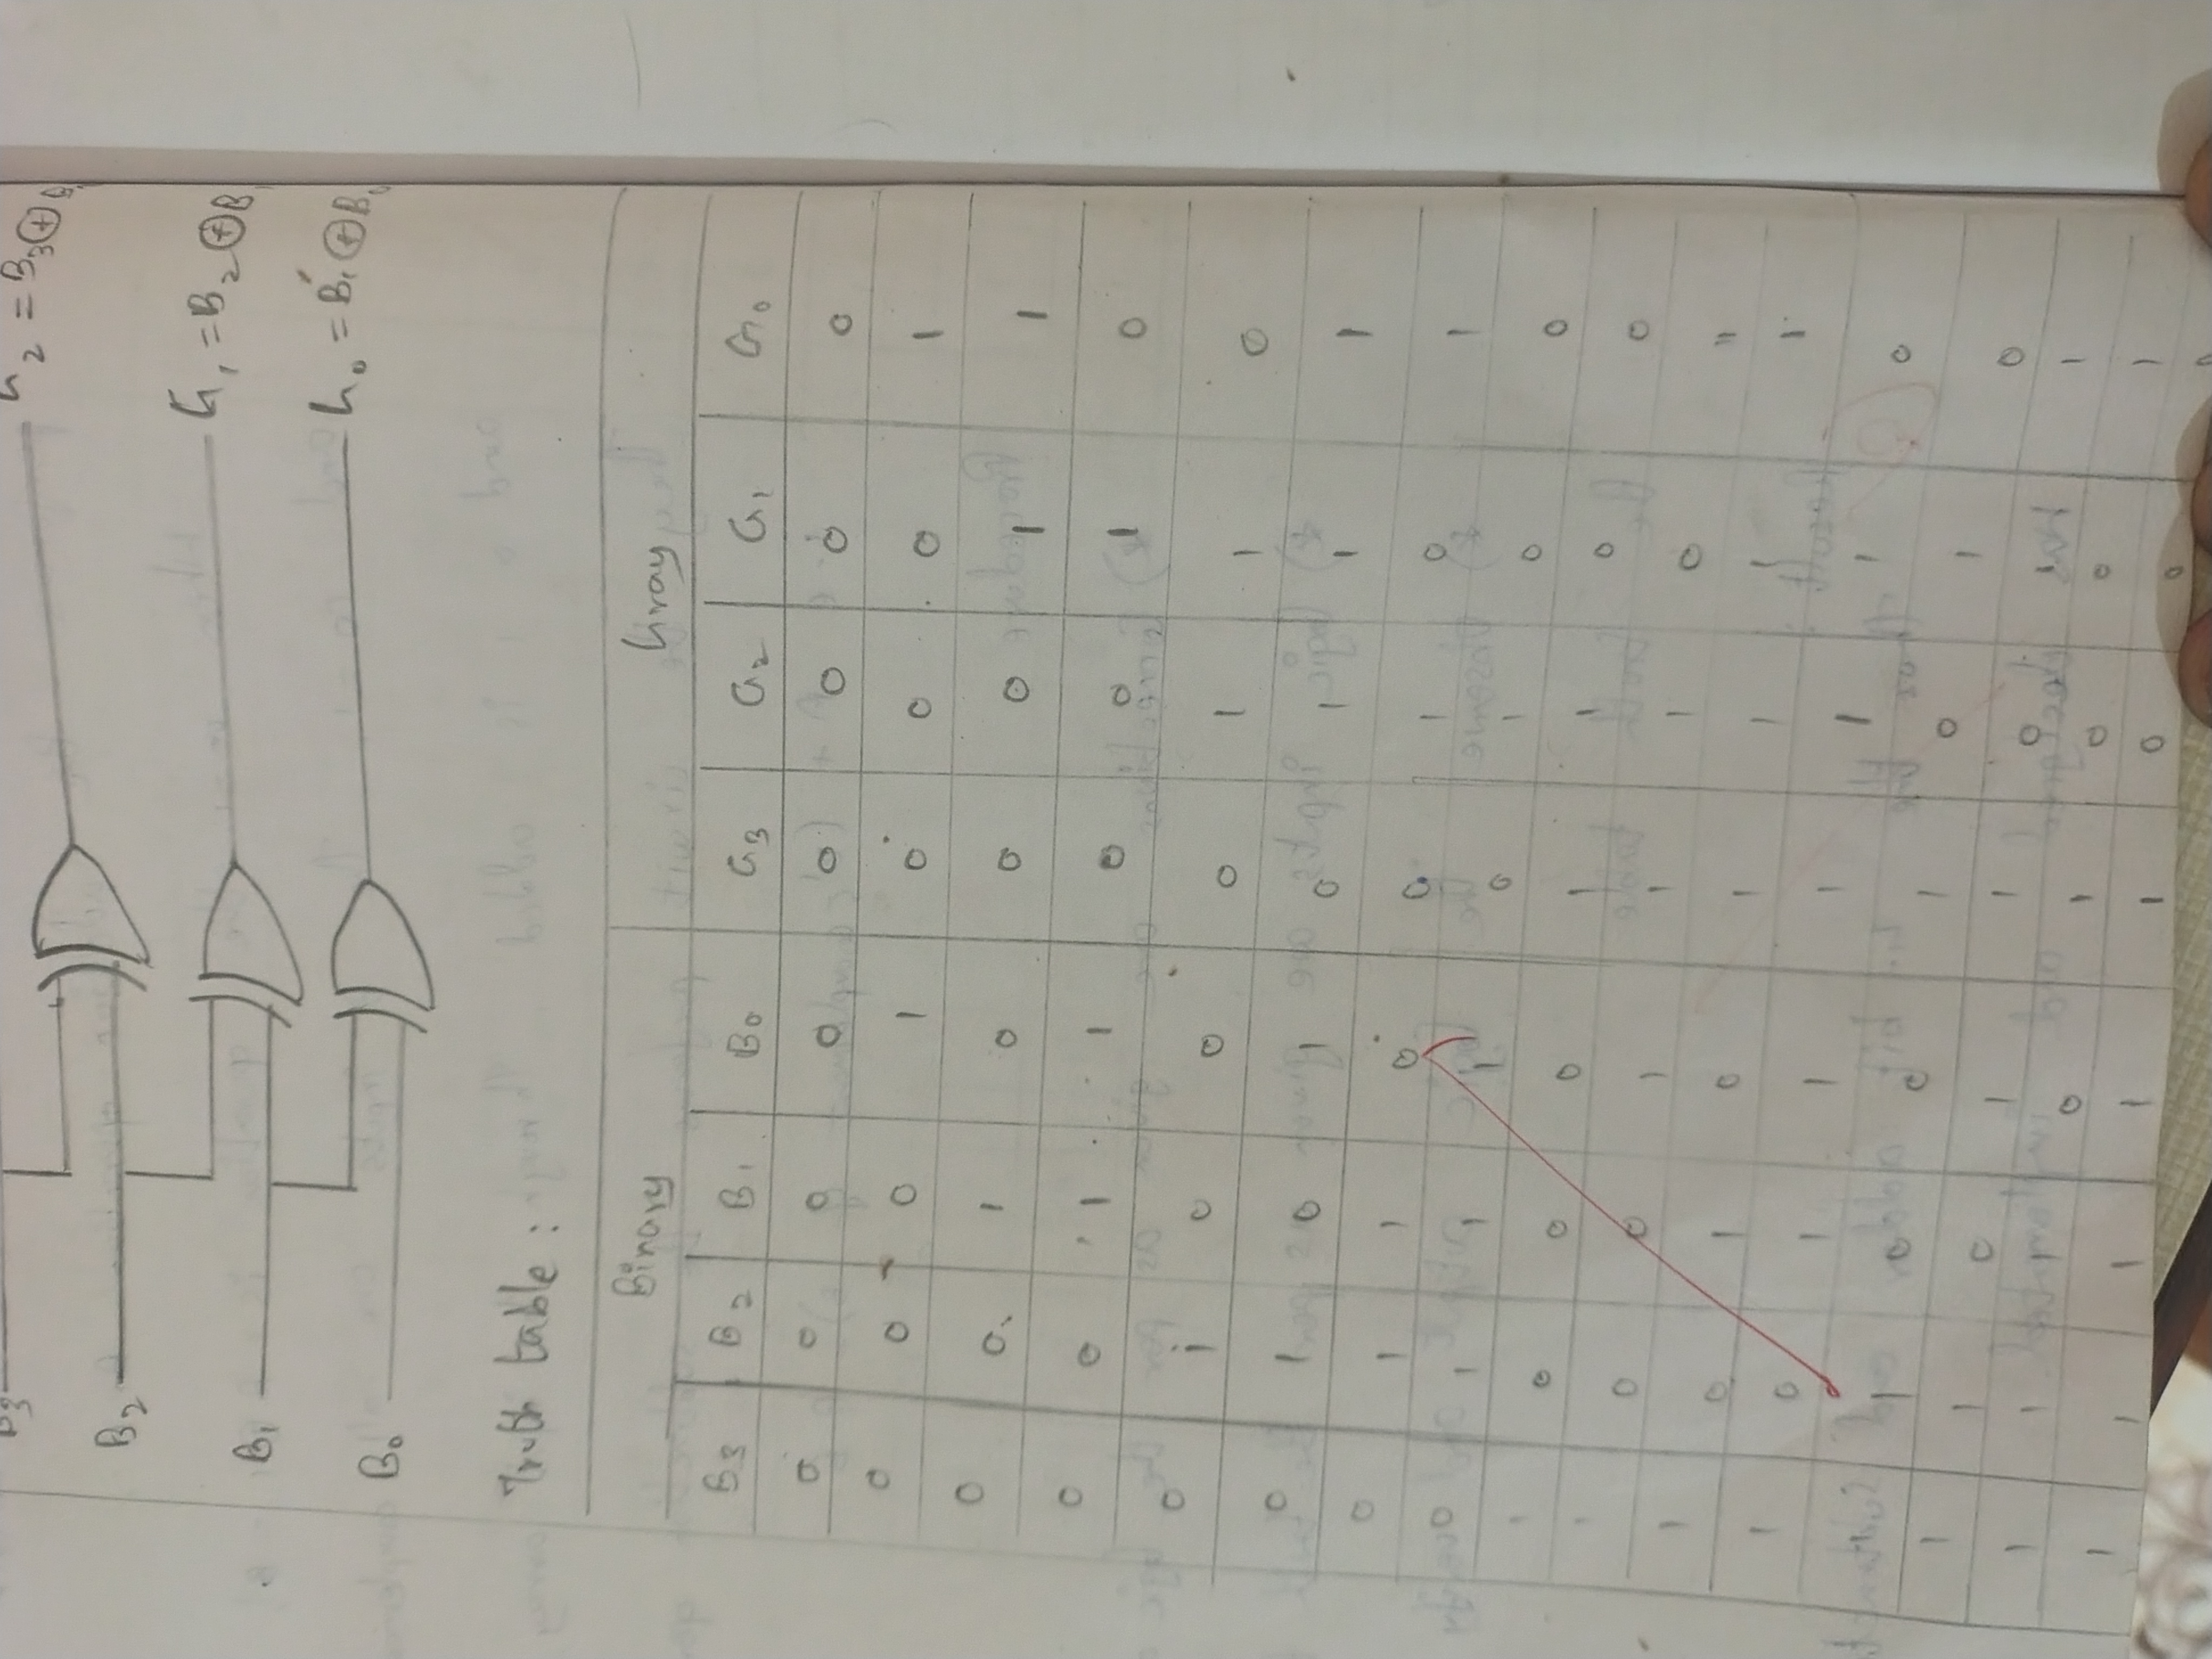 B3
G2 = B3⊕B
B2
G1 = B2⊕B1
B1
G0 = B1⊕B0
B0
Truth table :
Binary Gray
B3 B2 B1 B0 G3 G2 G1 G0
0 0 0 0 0 0 0 0
0 0 0 1 0 0 0 1
0 0 1 0 0 0 1 1
0 0 1 1 0 0 1 0
0 1 0 0 0 1 1 0
0 1 0 1 0 1 1 1
0 1 1 0 0 1 0 1
0 1 1 1 0 1 0 0
1 0 0 0 1 1 0 0
1 0 0 1 1 1 0 1
1 0 1 0 1 1 1 1
1 0 1 1 1 1 1 0
1 1 0 0 1 0 1 0
1 1 0 1 1 0 1 1
1 1 1 0 1 0 0 1
1 1 1 1 1 0 0 0